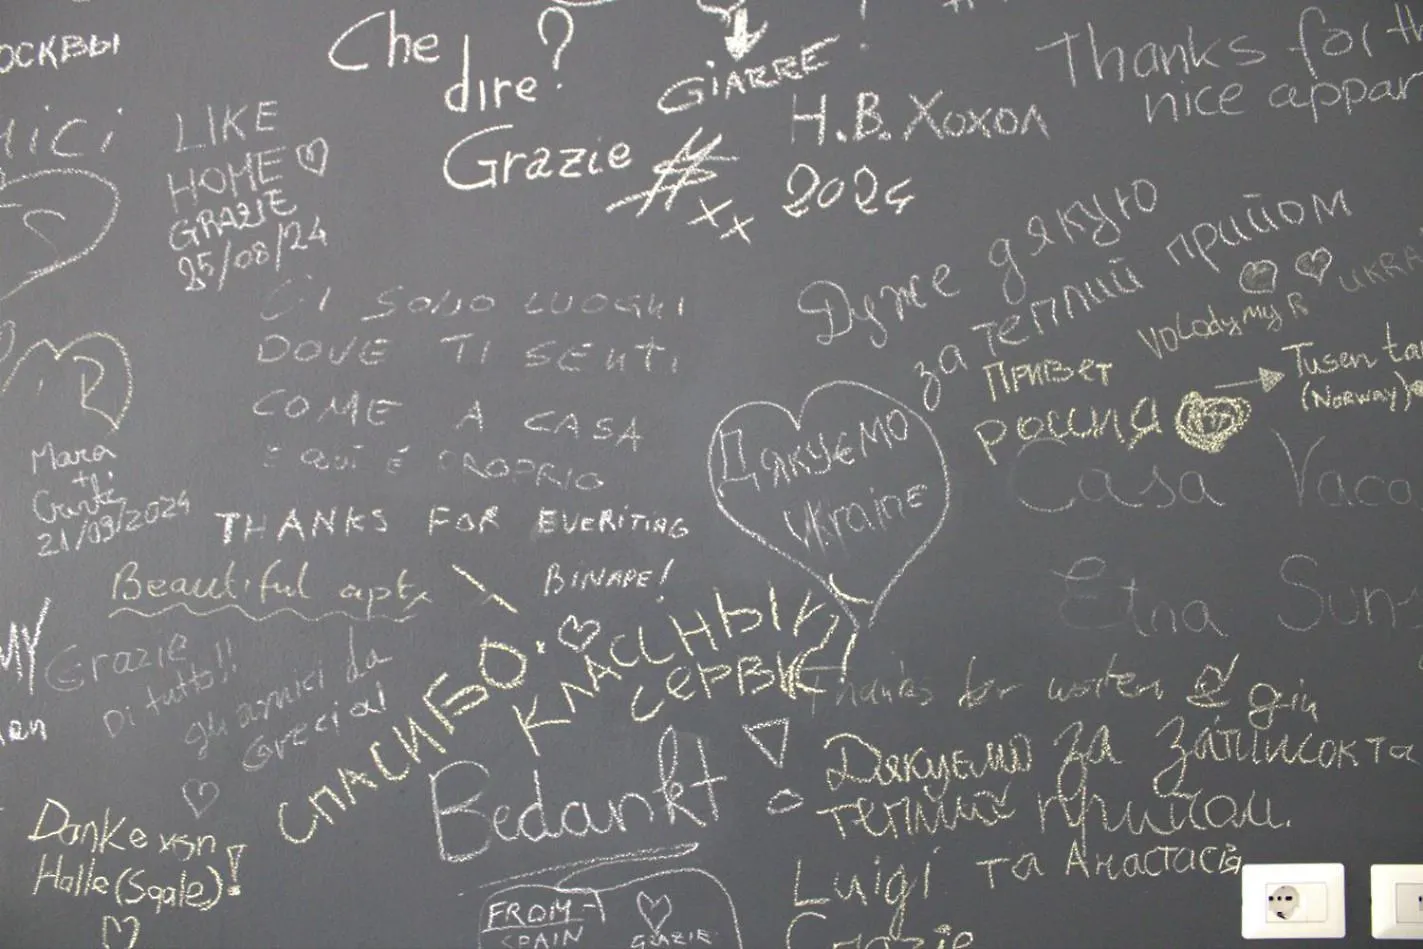 МОСКВЫ
Che
dire?
Grazie
GIARRE
Н.В. Хохол
2024
Thanks for
nice appar
LIKE
HOME
GRAZIE
25/08/24
CI SONO LUOGHI
DOVE TI SENTI
COME A CASA
E QUI È PROPRIO
Дуже дякую
за теплий прийом
Volodymyr UKRA
Привет
россия
Tusen ta
(Norway)
Дякуємо
Ukraine
Casa Vaco
Etna Sun
Mara
+
21/09/2024
THANKS FOR EVERITING
Beautiful apt
MY
Grazie
Di tutto!!
gli amici da
СПАСИБО
КЛАССНЫЙ
СЕРВИС
Bedankt
Thanks for
Дякуємо за затишок та
теплий прийом.
Luigi та Анастасія
Grazie
Danke von
Halle (Saale)!
FROM
SPAIN
GRAZIE